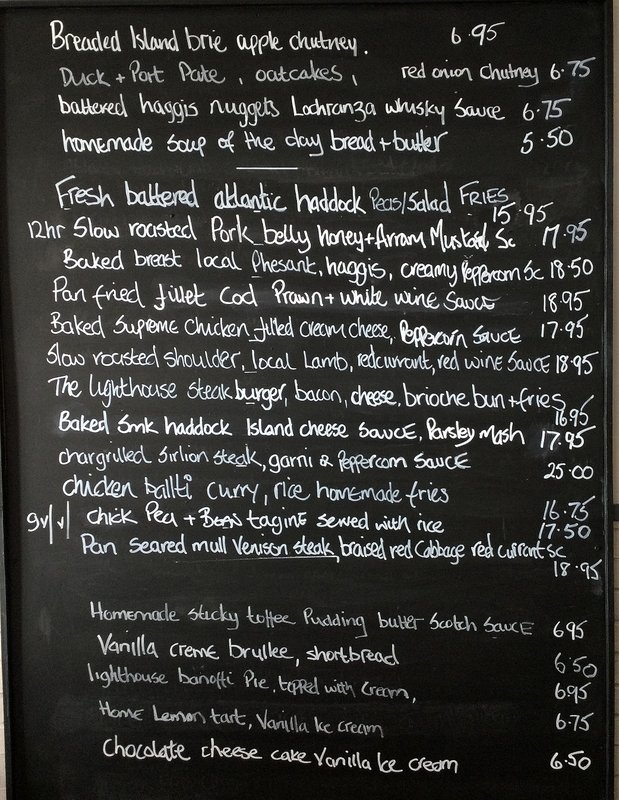 Breaded Island brie apple chutney. 6.95
Duck + Port Pate, oatcakes, red onion chutney 6.75
battered haggis nuggets Lochranza whusky Sauce 6.75
homemade soup of the day bread + butter 5.50
Fresh battered atlantic haddock Peas/Salad FRIES
15.95
12hr Slow roasted Pork belly honey + Arran Mustard Sc 17.95
Baked breast local Phesant, haggis, creamy Peppercorn Sc 18.50
Pan fried fillet Cod Prawn + white wine Sauce 18.95
Baked Supreme chicken filled cream cheese, Peppercorn Sauce 17.95
Slow roasted shoulder, local Lamb, redcurrant, red wine Sauce 18.95
The lighthouse steak burger, bacon, cheese, brioche bun + fries
16.95
Baked Smk haddock Island cheese Sauce, Parsley Mash 17.95
chargrilled Sirlion steak, garni & Peppercorn Sauce 25.00
chicken ballti curry, rice homemade fries
16.75
gv/v/ chick Pea + Bean tagine served with rice 17.50
Pan Seared mull Venison steak, braised red Cabbage red currant Sc
18.95
Homemade sticky toffee Pudding butter Scotch Sauce 695
Vanilla creme brullee, shortbread 6.50
lighthouse banoffi Pie, topped with Cream, 695
Home Lemon tart, Vanilla Ice cream 6.75
Chocolate cheese cake Vanilla Ice cream 6.50